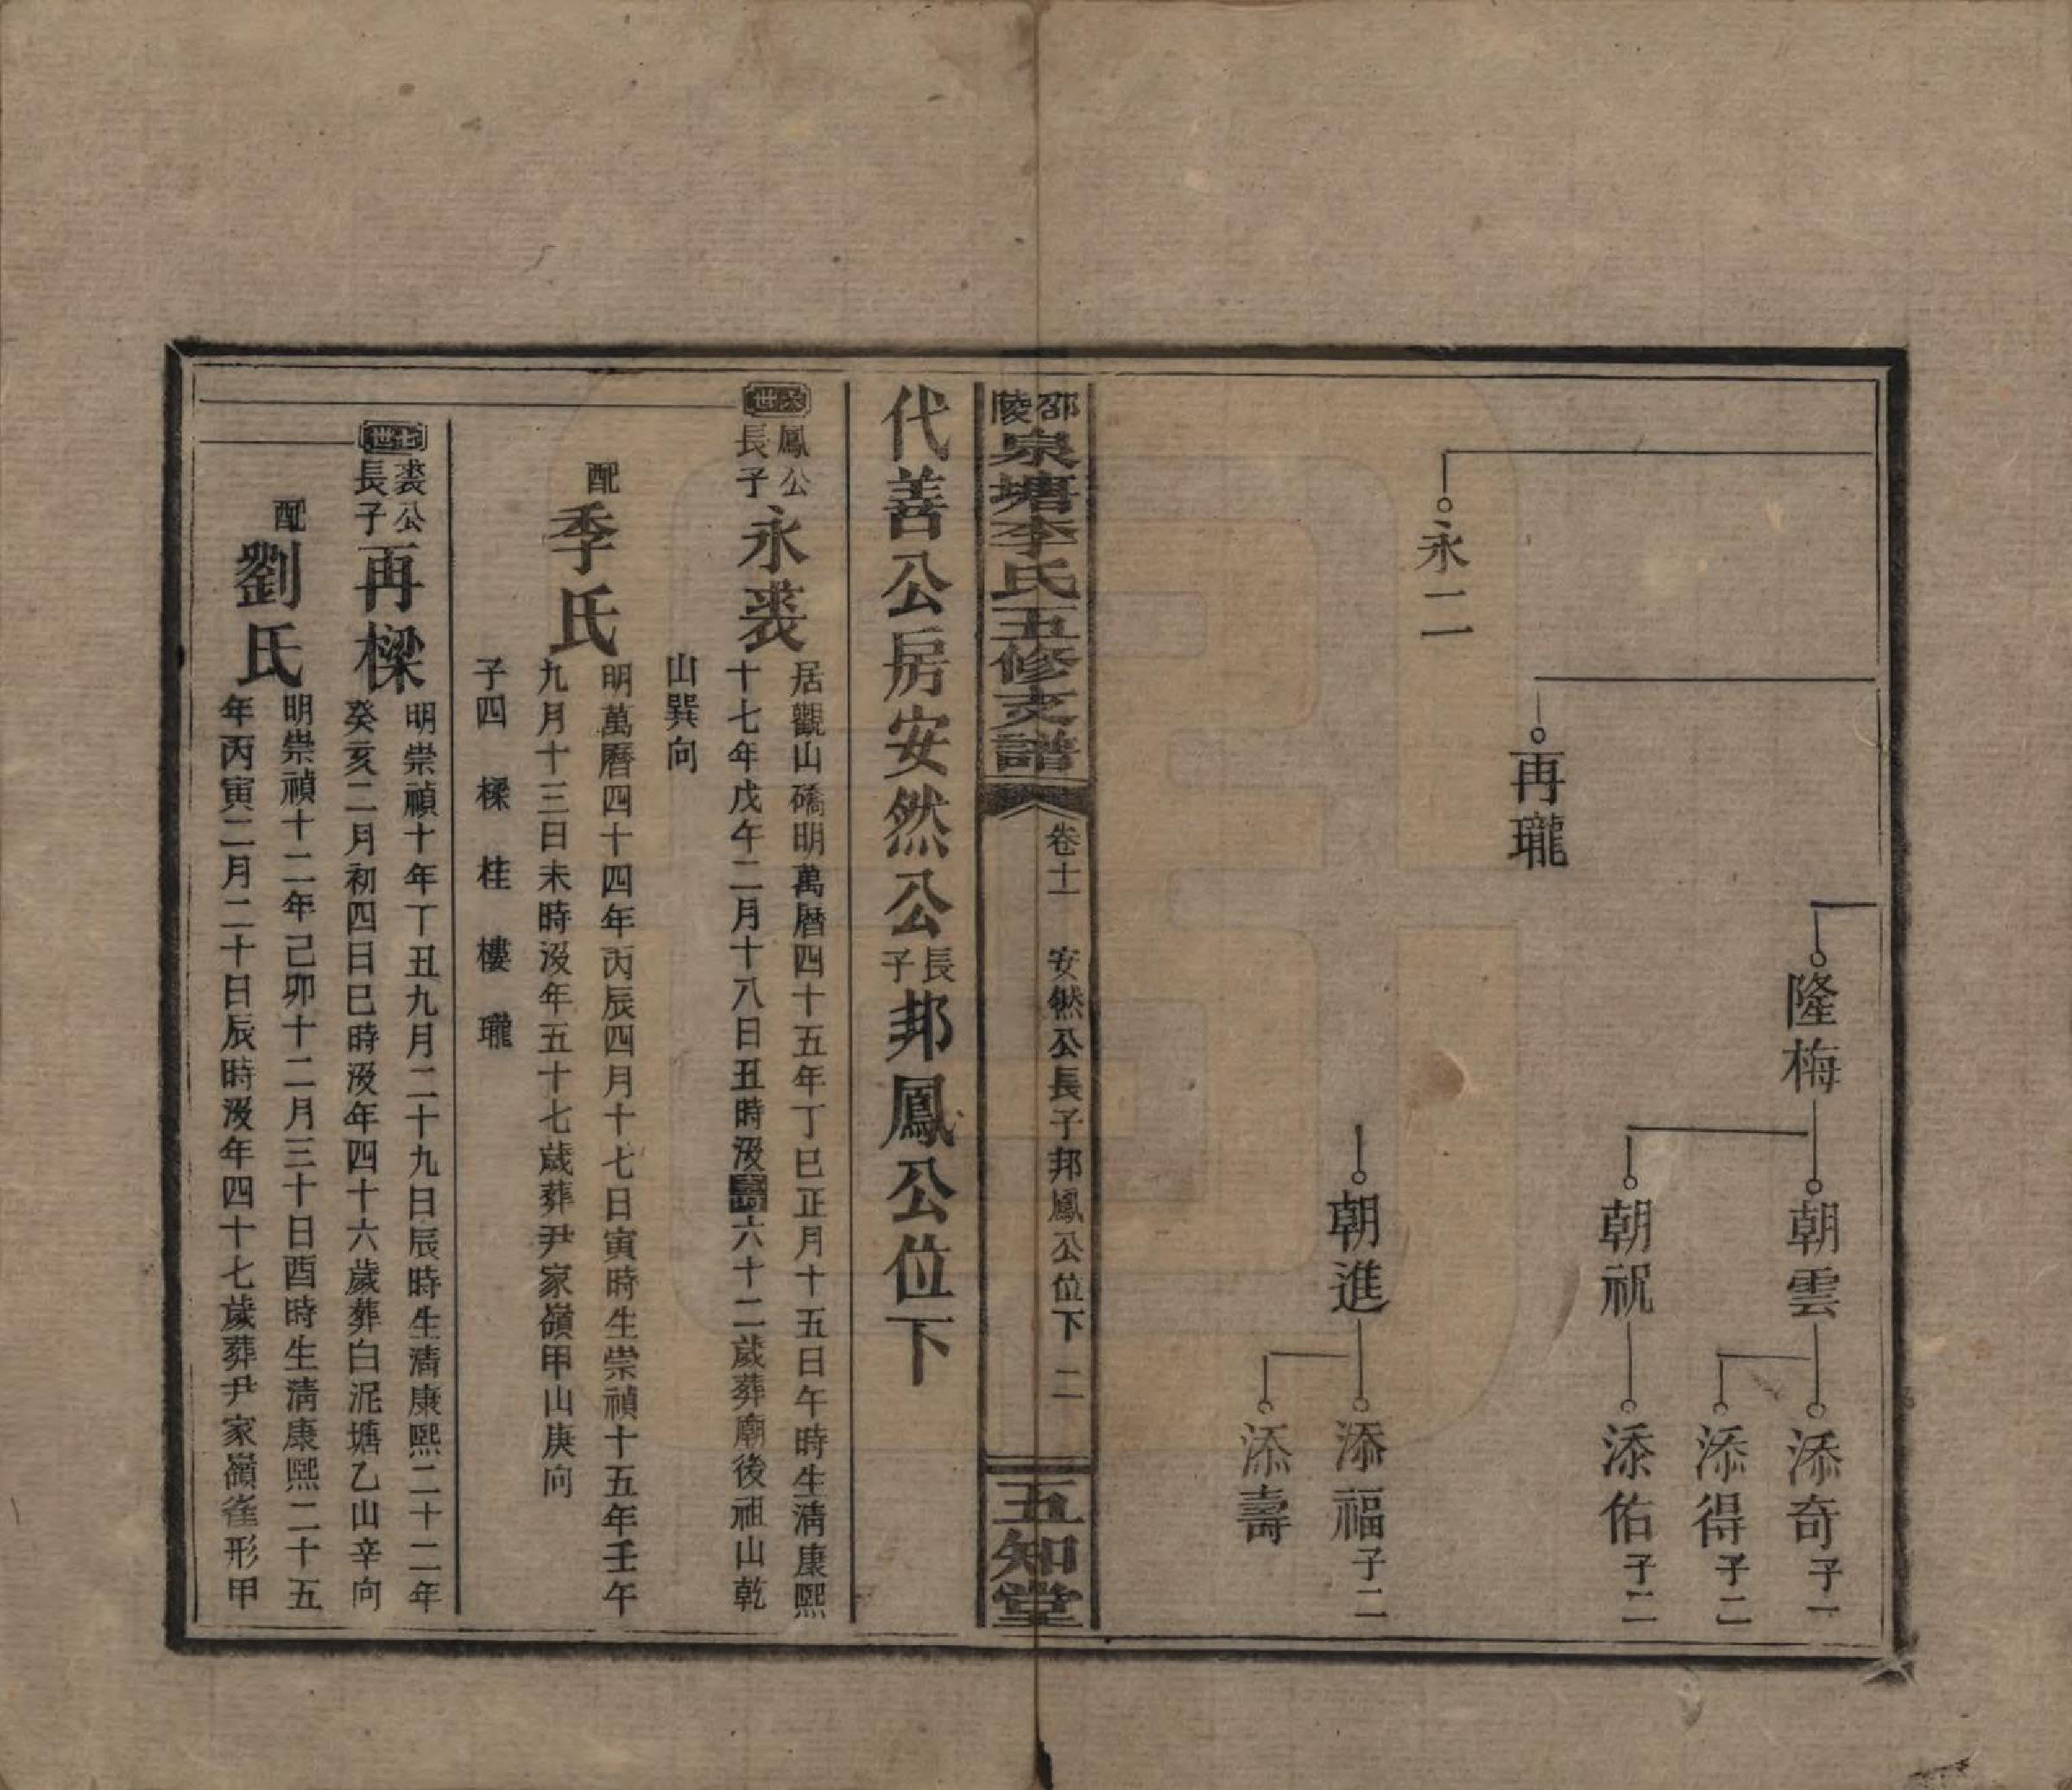 永二
再瓏
隆梅
朝雲
朝祝
朝進
添奇子一
添得子二
添佑子二
添福子二
添壽
邵陵泉塘李氏五修支譜
卷十一 安然公長子邦鳳公位下 二
五知堂
代善公房安然公長子邦鳳公位下
六世
鳳公長子永裘
居觀山礄明萬曆四十五年丁巳正月十五日午時生清康熙
十七年戊午二月十八日丑時歿壽六十二歲葬廟後祖山乾
山巽向
配季氏
明萬曆四十四年丙辰四月十七日寅時生崇禎十五年壬午
九月十三日未時歿年五十七歲葬尹家嶺甲山庚向
子四 樑 桂 樓 瓏
七世
裘公長子再樑
明崇禎十年丁丑九月二十九日辰時生清康熙二十二年
癸亥二月初四日巳時歿年四十六歲葬白泥塘乙山辛向
配劉氏
明崇禎十二年己卯十二月三十日酉時生清康熙二十五
年丙寅二月二十日辰時歿年四十七歲葬尹家嶺雀形甲